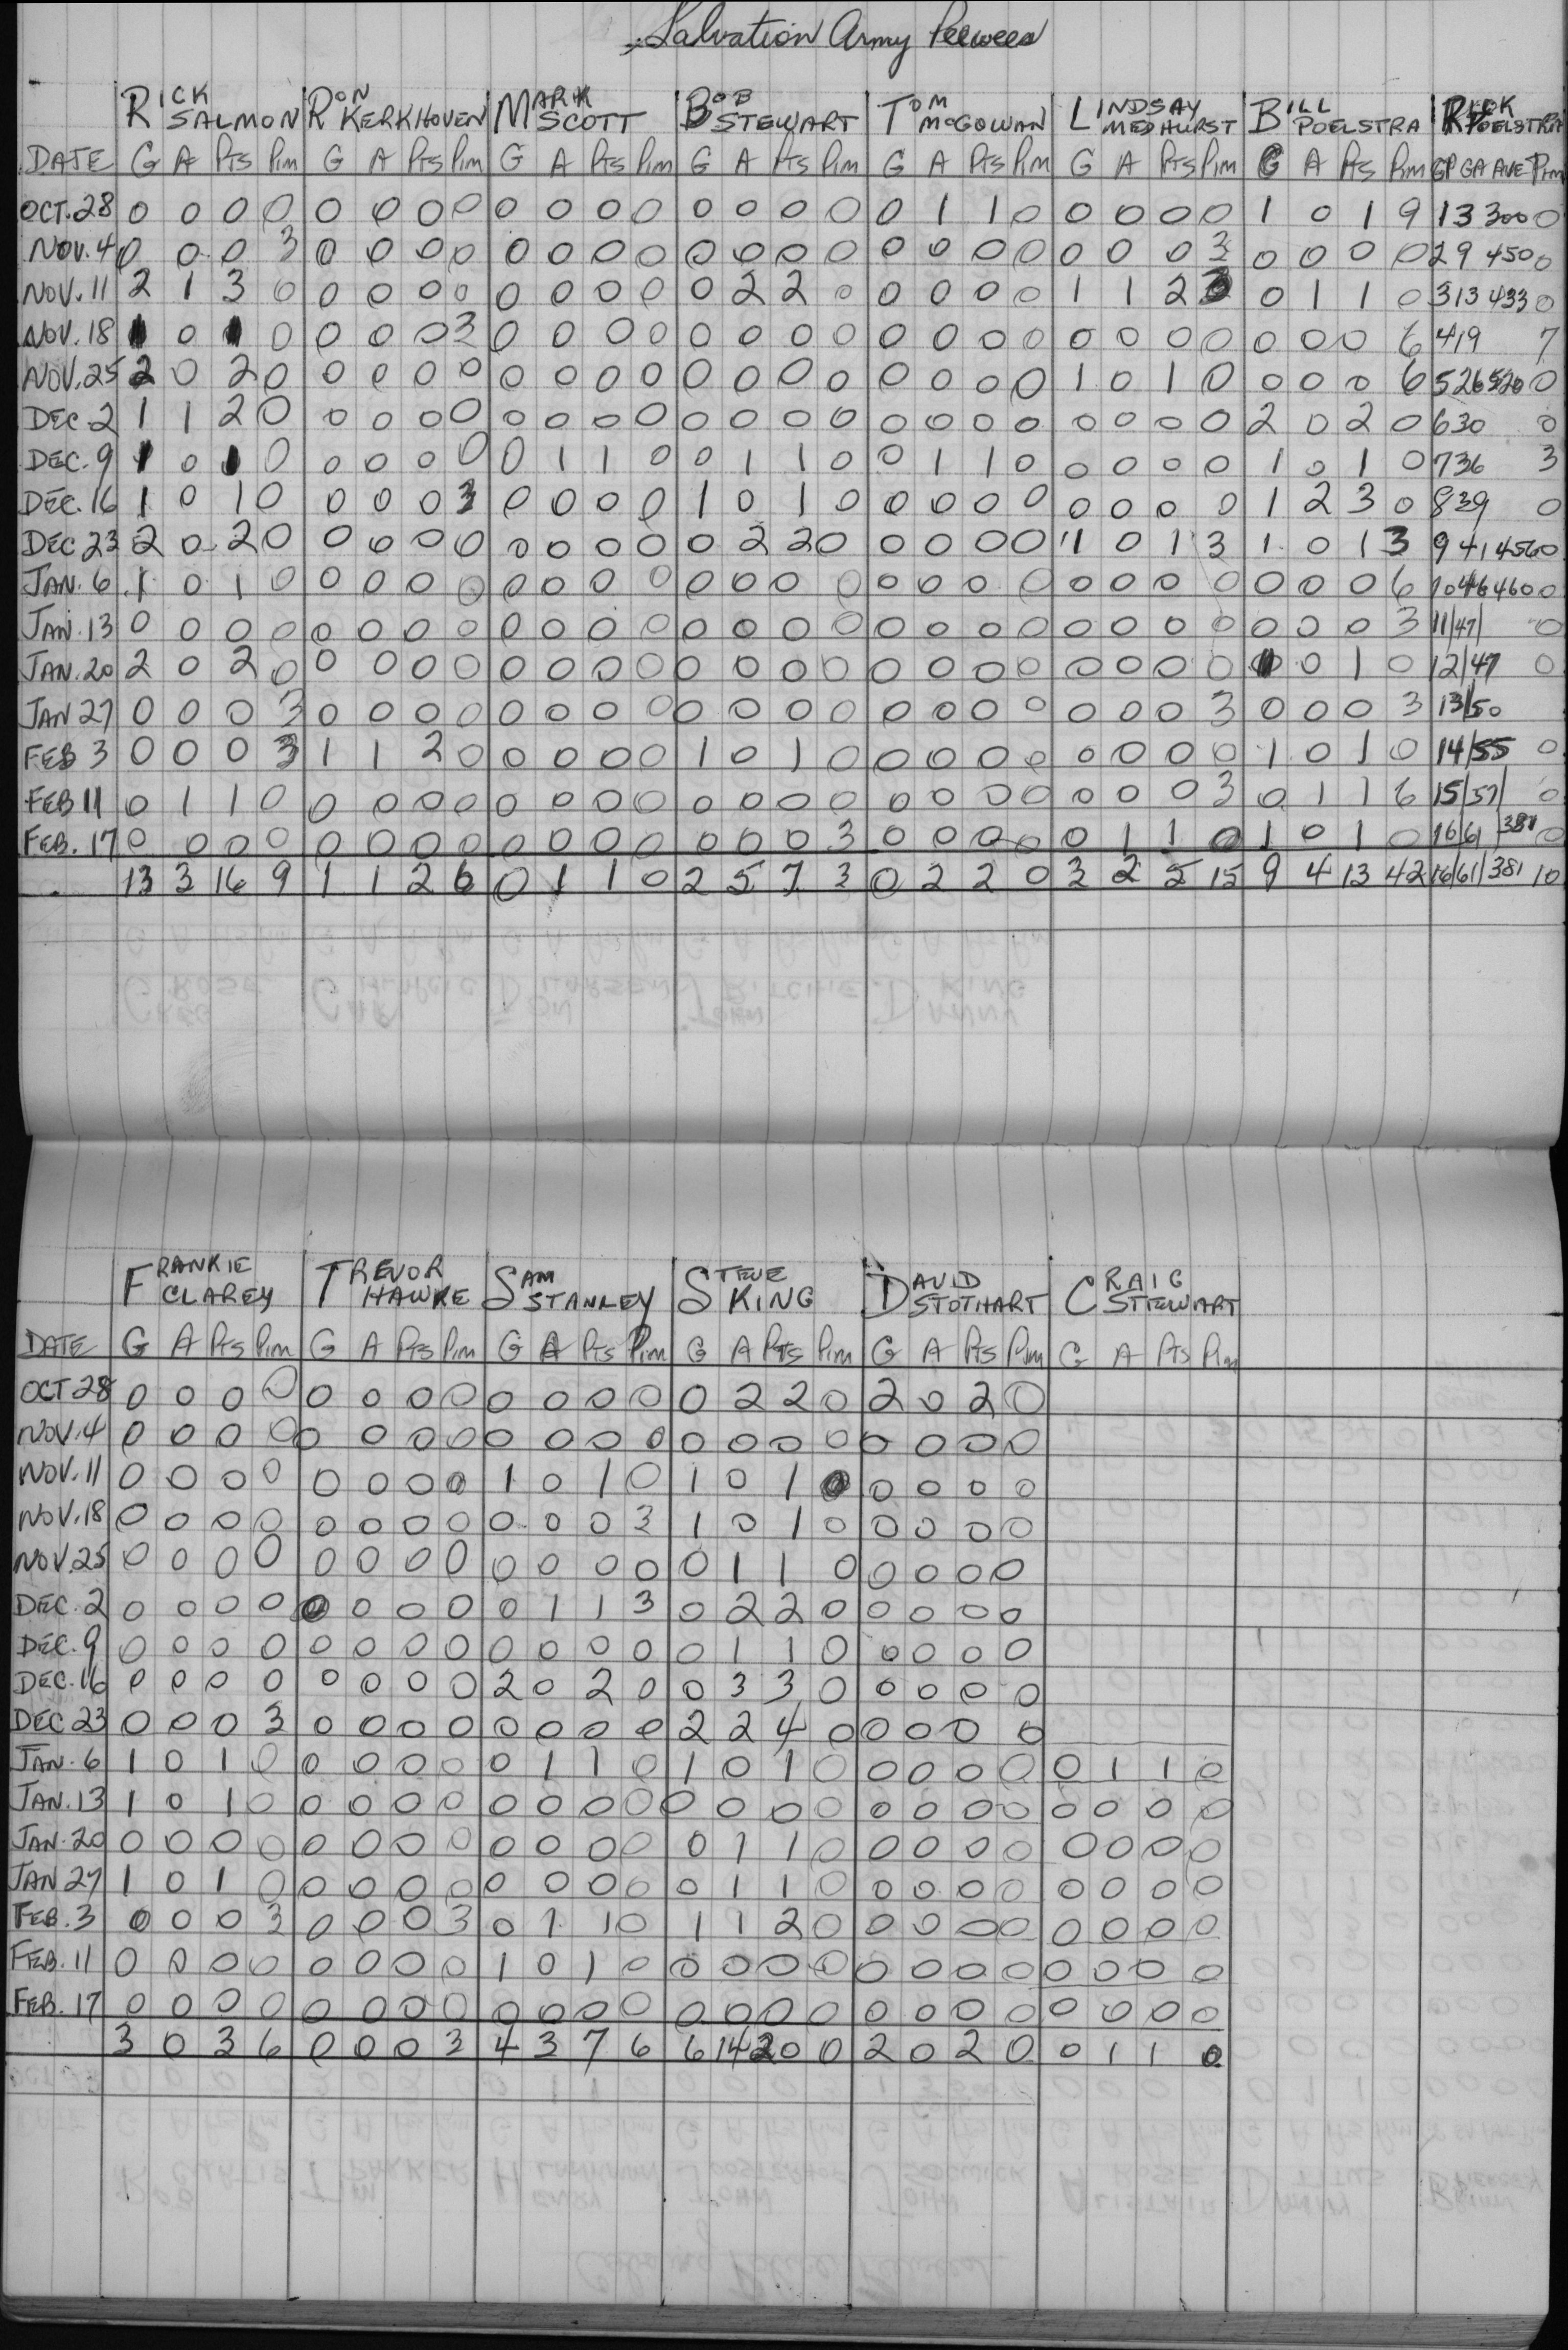 Salvation Army Peewees
RICK SALMON RON KERKHOVEN MARK SCOTT BOB STEWART TOM McGOWAN LINDSAY MEDHURST BILL POELSTRA RICK POELSTRA
DATE G A Pts Pim G A Pts Pim G A Pts Pim G A Pts Pim G A Pts Pim G A Pts Pim G A Pts Pim GP GA AVE Pim
OCT. 28 0 0 0 0 0 0 0 0 0 0 0 0 0 0 0 0 0 1 1 0 0 0 0 0 1 0 1 9 1 3 300 0
NOV. 4 0 0 0 3 0 0 0 0 0 0 0 0 0 0 0 0 0 0 0 0 0 0 0 3 0 0 0 0 2 9 450 0
NOV. 11 2 1 3 0 0 0 0 0 0 0 0 0 0 2 2 0 0 0 0 0 1 1 2 3 0 1 1 0 3 13 433 0
NOV. 18 1 0 1 0 0 0 0 3 0 0 0 0 0 0 0 0 0 0 0 0 0 0 0 0 0 0 0 6 4 19 7
NOV. 25 2 0 2 0 0 0 0 0 0 0 0 0 0 0 0 0 0 0 0 0 1 0 1 0 0 0 0 6 5 26 520 0
DEC. 2 1 1 2 0 0 0 0 0 0 0 0 0 0 0 0 0 0 0 0 0 0 0 0 0 2 0 2 0 6 30 0
DEC. 9 1 0 1 0 0 0 0 0 0 1 1 0 0 1 1 0 0 1 1 0 0 0 0 0 1 0 1 0 7 36 3
DEC. 16 1 0 1 0 0 0 0 3 0 0 0 0 1 0 1 0 0 0 0 0 0 0 0 0 1 2 3 0 8 39 0
DEC 23 2 0 2 0 0 0 0 0 0 0 0 0 0 2 2 0 0 0 0 0 1 0 1 3 1 0 1 3 9 41 456 0
JAN. 6 1 0 1 0 0 0 0 0 0 0 0 0 0 0 0 0 0 0 0 0 0 0 0 0 0 0 0 6 10 46 460 0
JAN. 13 0 0 0 0 0 0 0 0 0 0 0 0 0 0 0 0 0 0 0 0 0 0 0 0 0 0 0 3 11/47/ 0
JAN. 20 2 0 2 0 0 0 0 0 0 0 0 0 0 0 0 0 0 0 0 0 0 0 0 0 1 0 1 0 12/47 0
JAN 27 0 0 0 3 0 0 0 0 0 0 0 0 0 0 0 0 0 0 0 0 0 0 0 3 0 0 0 3 13/50
FEB 3 0 0 0 3 1 1 2 0 0 0 0 0 1 0 1 0 0 0 0 0 0 0 0 0 1 0 1 0 14/55 0
FEB 11 0 1 1 0 0 0 0 0 0 0 0 0 0 0 0 0 0 0 0 0 0 0 0 3 0 1 1 6 15/57/ 0
FEB. 17 0 0 0 0 0 0 0 0 0 0 0 0 0 0 0 3 0 0 0 0 0 1 1 0 1 0 1 0 16 61 381 0
13 3 16 9 1 1 2 6 0 1 1 0 2 5 7 3 0 2 2 0 3 2 5 15 9 4 13 42 16/61/381 10
FRANKIE CLAREY TREVOR HAWKE SAM STANLEY STEVE KING DAVID STOTHART CRAIG STEWART
DATE G A Pts Pim G A Pts Pim G A Pts Pim G A Pts Pim G A Pts Pim G A Pts Pim
OCT 28 0 0 0 0 0 0 0 0 0 0 0 0 0 2 2 0 2 0 2 0
NOV. 4 0 0 0 0 0 0 0 0 0 0 0 0 0 0 0 0 0 0 0 0
NOV. 11 0 0 0 0 0 0 0 0 1 0 1 0 1 0 1 0 0 0 0 0
NOV. 18 0 0 0 0 0 0 0 0 0 0 0 3 1 0 1 0 0 0 0 0
NOV. 25 0 0 0 0 0 0 0 0 0 0 0 0 0 1 1 0 0 0 0 0
DEC. 2 0 0 0 0 0 0 0 0 0 1 1 3 0 2 2 0 0 0 0 0
DEC. 9 0 0 0 0 0 0 0 0 0 0 0 0 0 1 1 0 0 0 0 0
DEC. 16 0 0 0 0 0 0 0 0 2 0 2 0 0 3 3 0 0 0 0 0
DEC 23 0 0 0 3 0 0 0 0 0 0 0 0 2 2 4 0 0 0 0 0
JAN. 6 1 0 1 0 0 0 0 0 0 1 1 0 1 0 1 0 0 0 0 0 0 1 1 0
JAN. 13 1 0 1 0 0 0 0 0 0 0 0 0 0 0 0 0 0 0 0 0 0 0 0 0
JAN. 20 0 0 0 0 0 0 0 0 0 0 0 0 0 1 1 0 0 0 0 0 0 0 0 0
JAN 27 1 0 1 0 0 0 0 0 0 0 0 0 0 1 1 0 0 0 0 0 0 0 0 0
FEB. 3 0 0 0 3 0 0 0 3 0 1 1 0 1 1 2 0 0 0 0 0 0 0 0 0
FEB. 11 0 0 0 0 0 0 0 0 1 0 1 0 0 0 0 0 0 0 0 0 0 0 0 0
FEB. 17 0 0 0 0 0 0 0 0 0 0 0 0 0 0 0 0 0 0 0 0 0 0 0 0
3 0 3 6 0 0 0 3 4 3 7 6 6 14 20 0 2 0 2 0 0 1 1 0